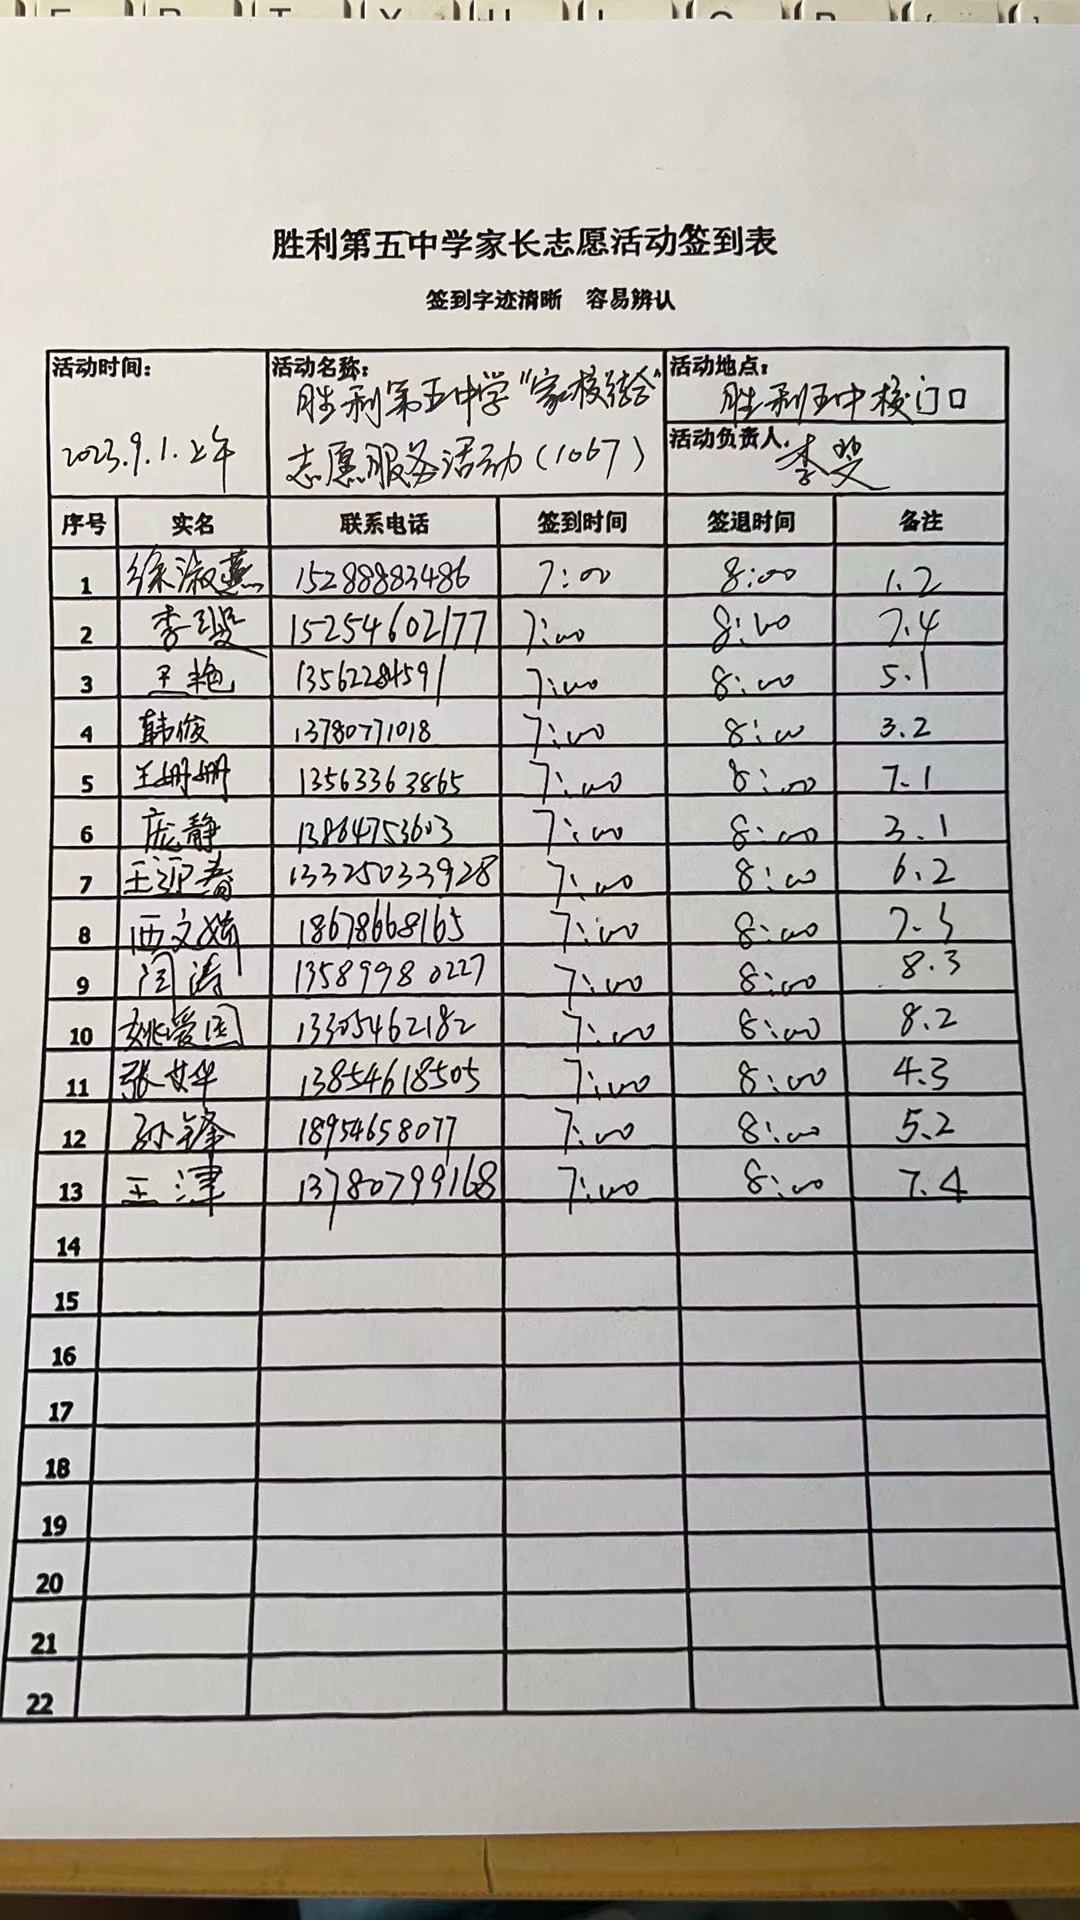 胜利第五中学家长志愿活动签到表
签到字迹清晰 容易辨认
活动时间: 2023.9.1.上午
活动名称: 胜利第五中学"家校结合"
志愿服务活动(1067)
活动地点: 胜利五中校门口
活动负责人. 李斐
序号 实名 联系电话 签到时间 签退时间 备注
1 徐淑燕 15288883486 7:00 8:00 1.2
2 李 15254602177 7:00 8:00 7.4
3 王艳 13562284591 7:00 8:00 5.1
4 韩俊 13780771018 7:00 8:00 3.2
5 王姗姗 13563363865 7:00 8:00 7.1
6 庞静 13864753603 7:00 8:00 3.1
7 王迎春 13325033928 7:00 8:00 6.2
8 西文 18678668165 7:00 8:00 7.3
9 闫涛 13589980227 7:00 8:00 8.3
10 姚爱国 13305462182 7:00 8:00 8.2
11 张廿华 13854618505 7:00 8:00 4.3
12 孙锋 18954658077 7:00 8:00 5.2
13 王津 13780799168 7:00 8:00 7.4
14
15
16
17
18
19
20
21
22